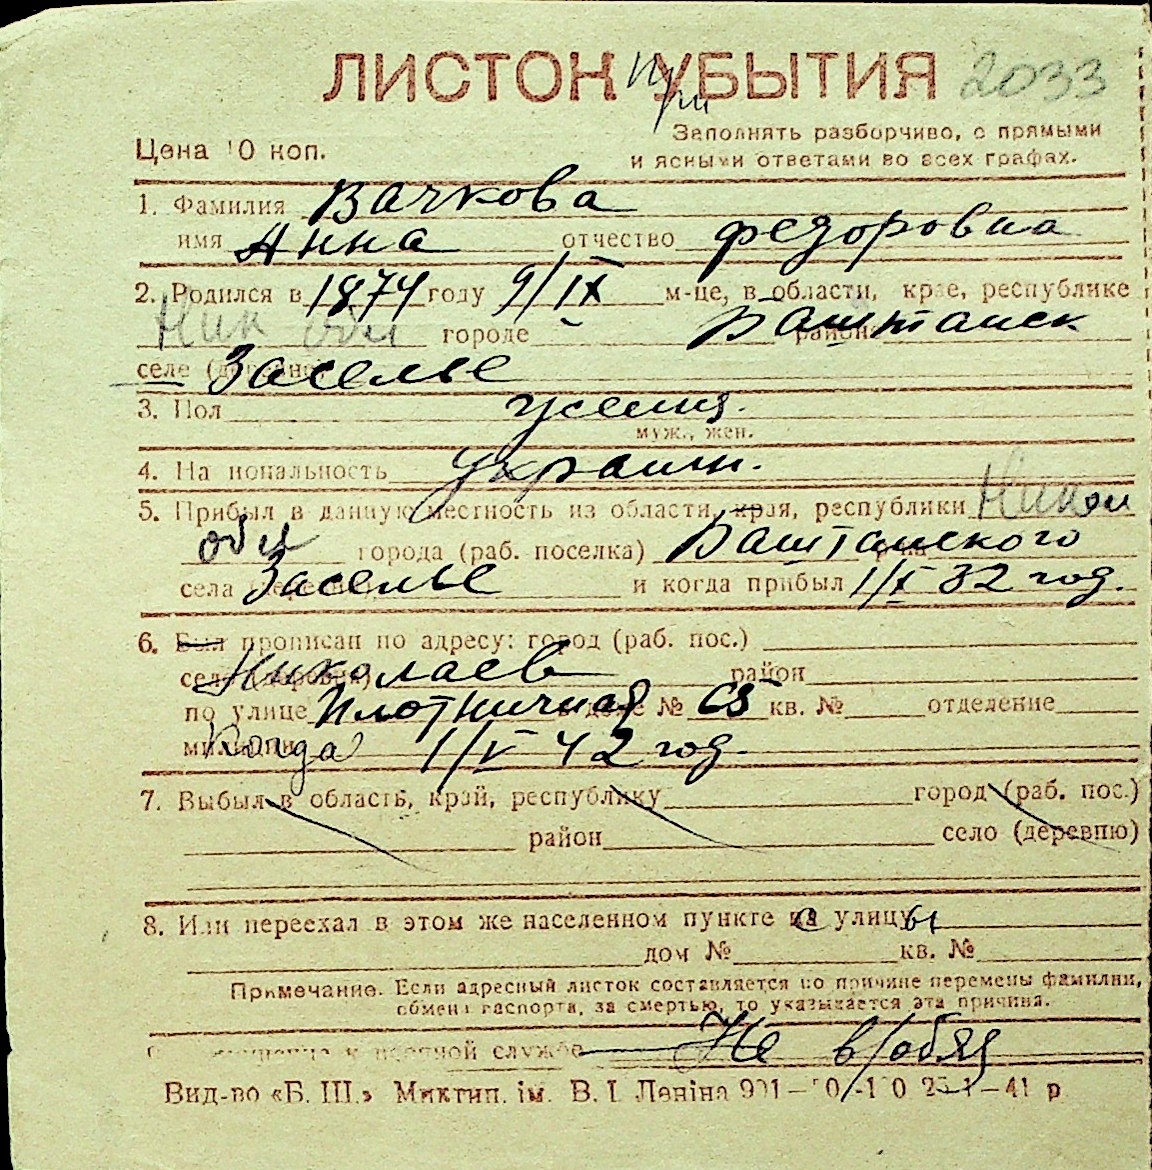 ЛИСТОК УБЫТИЯ 2033
Цена 10 коп.
Заполнять разборчиво, с прямыми
и ясными ответами во всех графах.
1. Фамилия Вачкова
имя Анна отчество Федоровна
2. Родился в 1874 году 9/IX м-це, в области, крае, республике
Ник обл городе Баштанск районе
селе (деревне) Заселье
3. Пол женщ.
муж., жен.
4. Национальность украин.
5. Прибыл в данную местность из области, края, республики Никол
обл города (раб. поселка) Баштанского р-на
села (деревни) Заселье и когда прибыл 1/X 32 год.
6. Был прописан по адресу: город (раб. пос.)
село (деревня) Николаев район
по улице Плотничная в доме № 65 кв. № отделение
милиции Когда 1/V 42 год.
7. Выбыл в область, край, республику город (раб. пос.)
район село (деревню)
8. Или переехал в этом же населенном пункте с улицы
дом № кв. №
Примечание. Если адресный листок составляется по причине перемены фамилии,
обмена паспорта, за смертью, то указывается эта причина.
к военной службе Не в/обяз
Вид-во «Б. Ш.» Миктип. ім. В. І Леніна 901 – 41 р